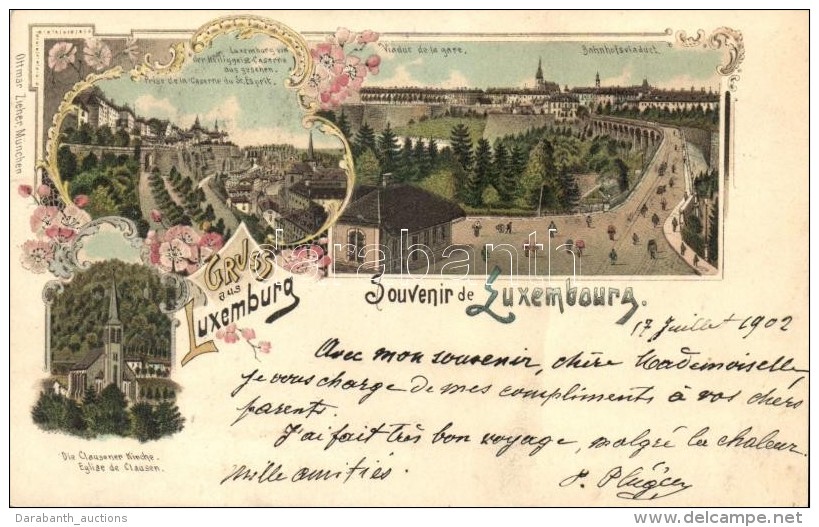 Luxemburg von
der Heiliggeist-Caserne
aus gesehen.
Prise de la Caserne du St. Esprit.
Viaduc de la gare.
Bahnhofsviaduct.
Ottmar Zieher, München
darabanth
GRUSS
aus
Luxemburg
Souvenir de Luxembourg.
17 Juillet 1902
Avec mon souvenir, chère Mademoiselle,
je vous charge de mes compliments à vos chers
parents.
J'ai fait très bon voyage, malgré la chaleur.
Mille amitiés.
Die Clausener Kirche.
Eglise de Clausen.
Darabanth_auctions
delcampe.net